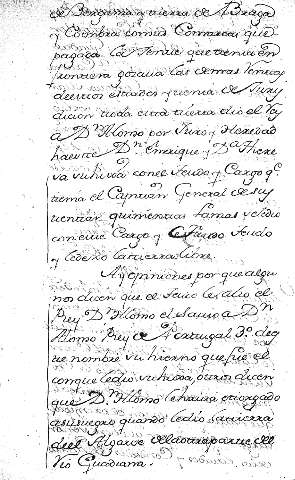 de Bergansa y tierra de Braga
y Coimbra con sus Comarcas que
pagaba la Gente que tenia en
frontera gozaua las demas tenias
de sus estados y tenia de Jury
dicion toda esta tierra dio el Rey
a Dn. Alonso por Juro, y Heredad
haueite Dn. Enrique y Da. There
sa su hixa con el feudo y Cargo q.
tenia el Capitan General de sus
tentar quinientas Lanzas y se dio
con este Cargo y feudo
y le dexo la tierra libre.
Ay opiniones por que algu
nos dicen que de feuo les dio el
Rey Dn. Alonso el Sauio a Dn.
Alonso Rey de Portugal 3o. des
te nombre su hierno que fue el
con que le dio su hixa, otros dicen
que Dn. Alonso le hauia otorgado
a su suegro quando le dio la tierra
del Algarve de la otra parte del
Rio Guadiana.